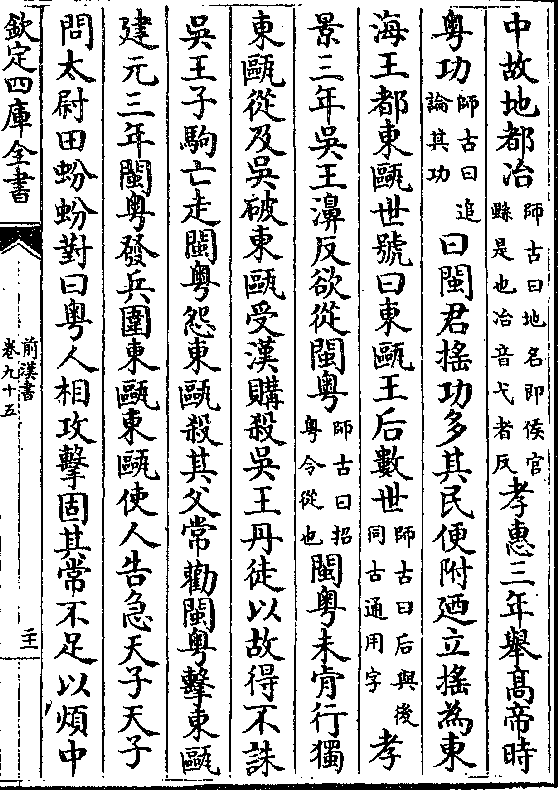 中故地都冶師古曰地名即侯官縣是也冶音弋者反孝惠三年舉髙帝時
粤功師古曰追論其功曰閩君搖功多其民便附廼立搖為東
海王都東甌世號曰東甌王后數世師古曰后與後同古通用字孝
景三年吳王濞反欲從閩粤師古曰招粤令從也閩粤未肯行獨
東甌從及吳破東甌受漢購殺吳王丹徒以故得不誅
吳王子駒亡走閩粤怨東甌殺其父常勸閩粤擊東甌
建元三年閩粤發兵圍東甌東甌使人告急天子天子
問太尉田蚡蚡對曰粤人相攻擊固其常不足以煩中
欽定四庫全書
前漢書
卷九十五
二十